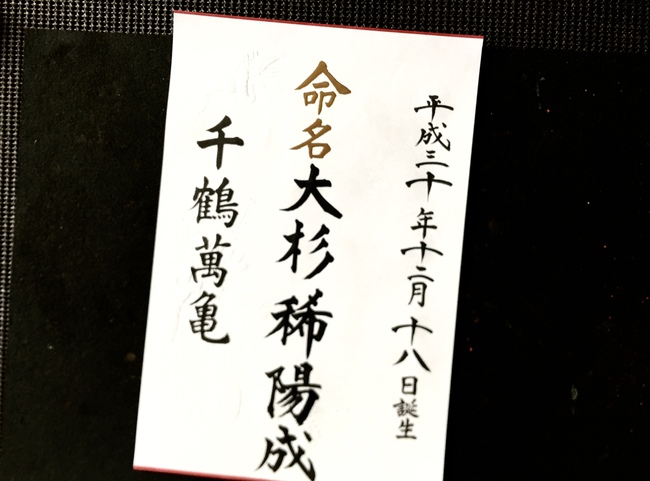 平成三十年十二月十八日誕生
命名大杉稀陽成
千鶴萬亀